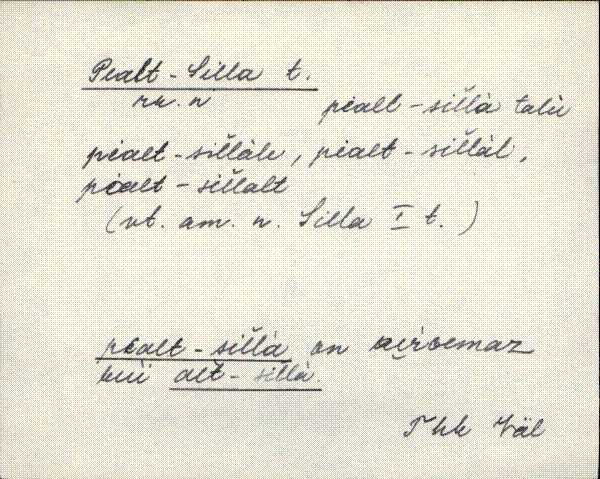 Pealt-Silla t.
rn. n pialt-sillà talù
pialt-sillàle, pialt-sillàl,
pialt-sillalt
(vt. am. n. Silla I t.)
pialt-sillà on
kui alt-sillà.
Thk Väl